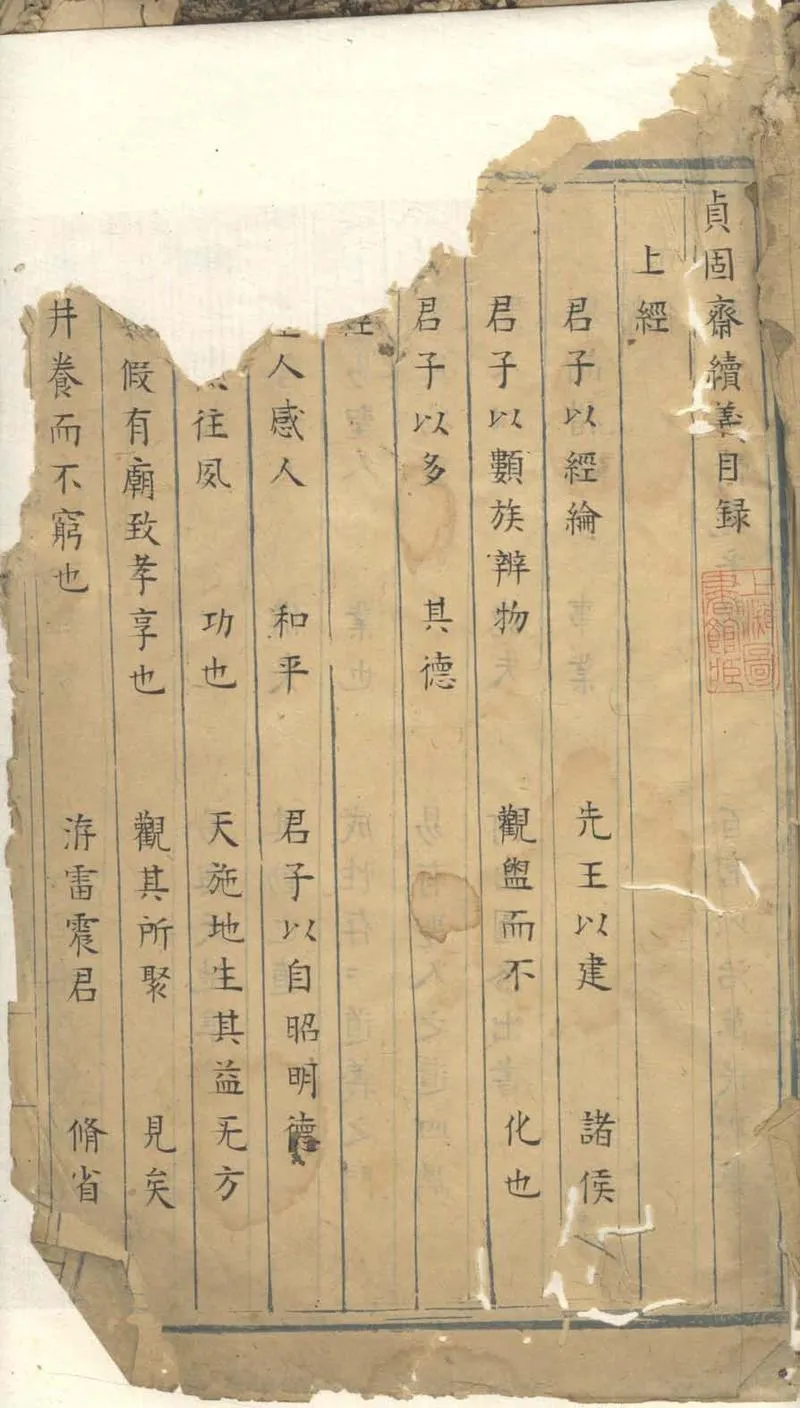 貞固齋續義目录
上經
君子以經綸 先王以建 諸侯
君子以類族辨物 觀盥而不 化也
君子以多 其德
經
人感人 和平 君子以自昭明德
往夙 功也 天施地生其益无方
假有廟致孝享也 觀其所聚 見矣
井養而不窮也 洊雷震君 脩省
上海圖書館藏